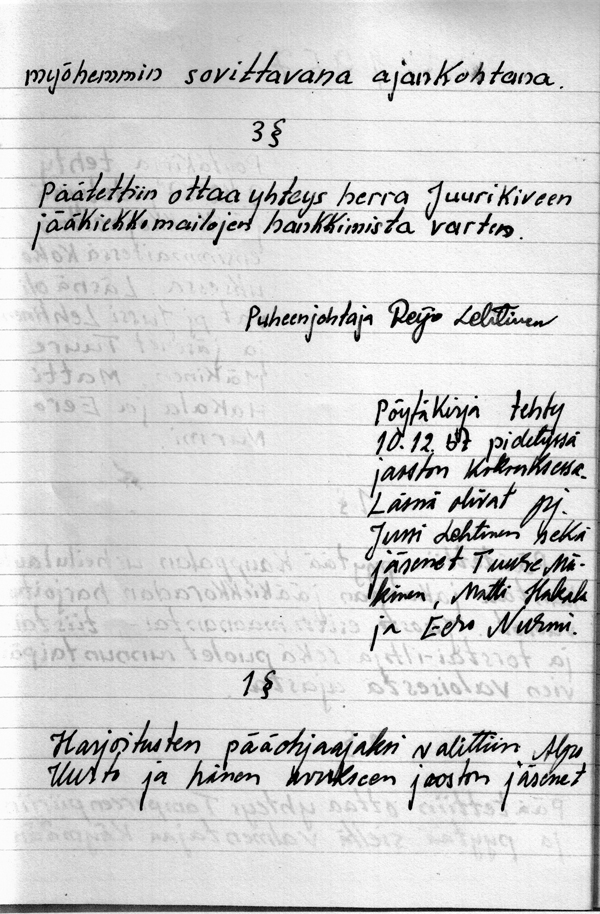 myöhemmin sovittavana ajankohtana.
3§
Päätettiin ottaa yhteys herra Juurikiveen
jääkiekkomailojen hankkimista varten.
Puheenjohtaja Reijo Lehtinen
Pöytäkirja tehty
10.12. 47 pidetyssä
jaoston kokouksessa.
Läsnä olivat pj.
Jussi Lehtinen sekä
jäsenet Tuure Mä-
kinen, Matti Hakala
ja Eero Nurmi.
1§
Harjoitusten pääohjaajaksi valittiin Alpo
ja hänen avukseen jaoston jäsenet